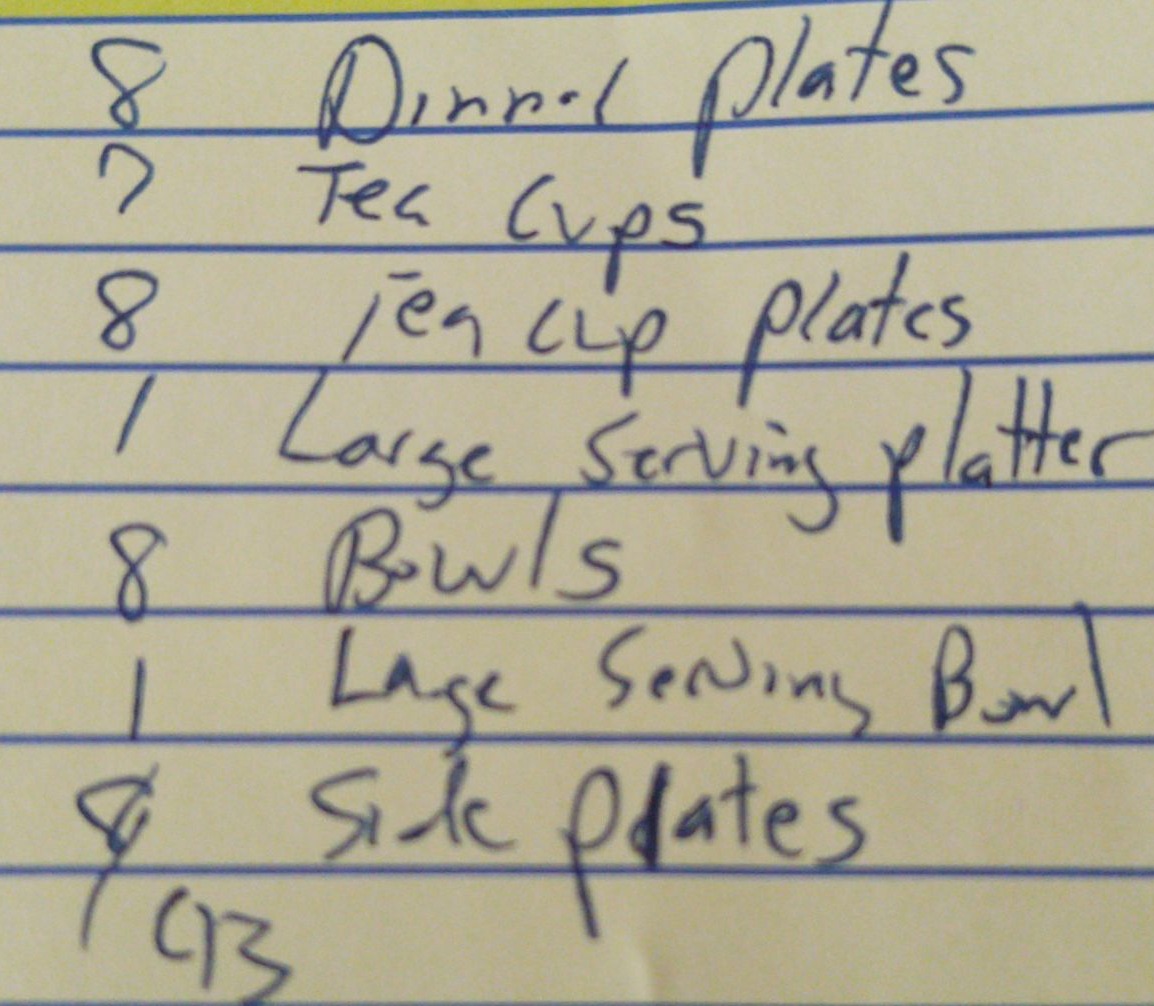 8 Dinner plates
7 Tea Cups
8 Tea cup plates
1 Large Serving platter
8 Bowls
1 Large Serving Bowl
8 Side plates